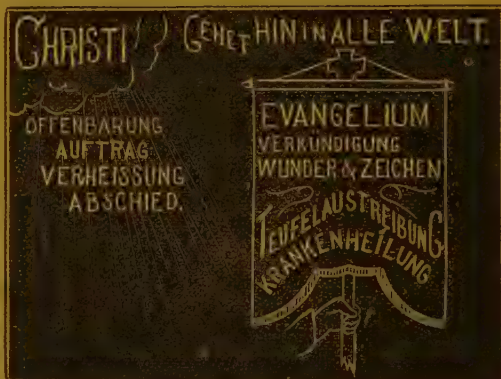 CHRISTI
GEHET HIN IN ALLE WELT.
OFFENBARUNG
AUFTRAG
VERHEISSUNG
ABSCHIED.
EVANGELIUM
VERKÜNDIGUNG
WUNDER & ZEICHEN
TEUFELAUSTREIBUNG
KRANKENHEILUNG